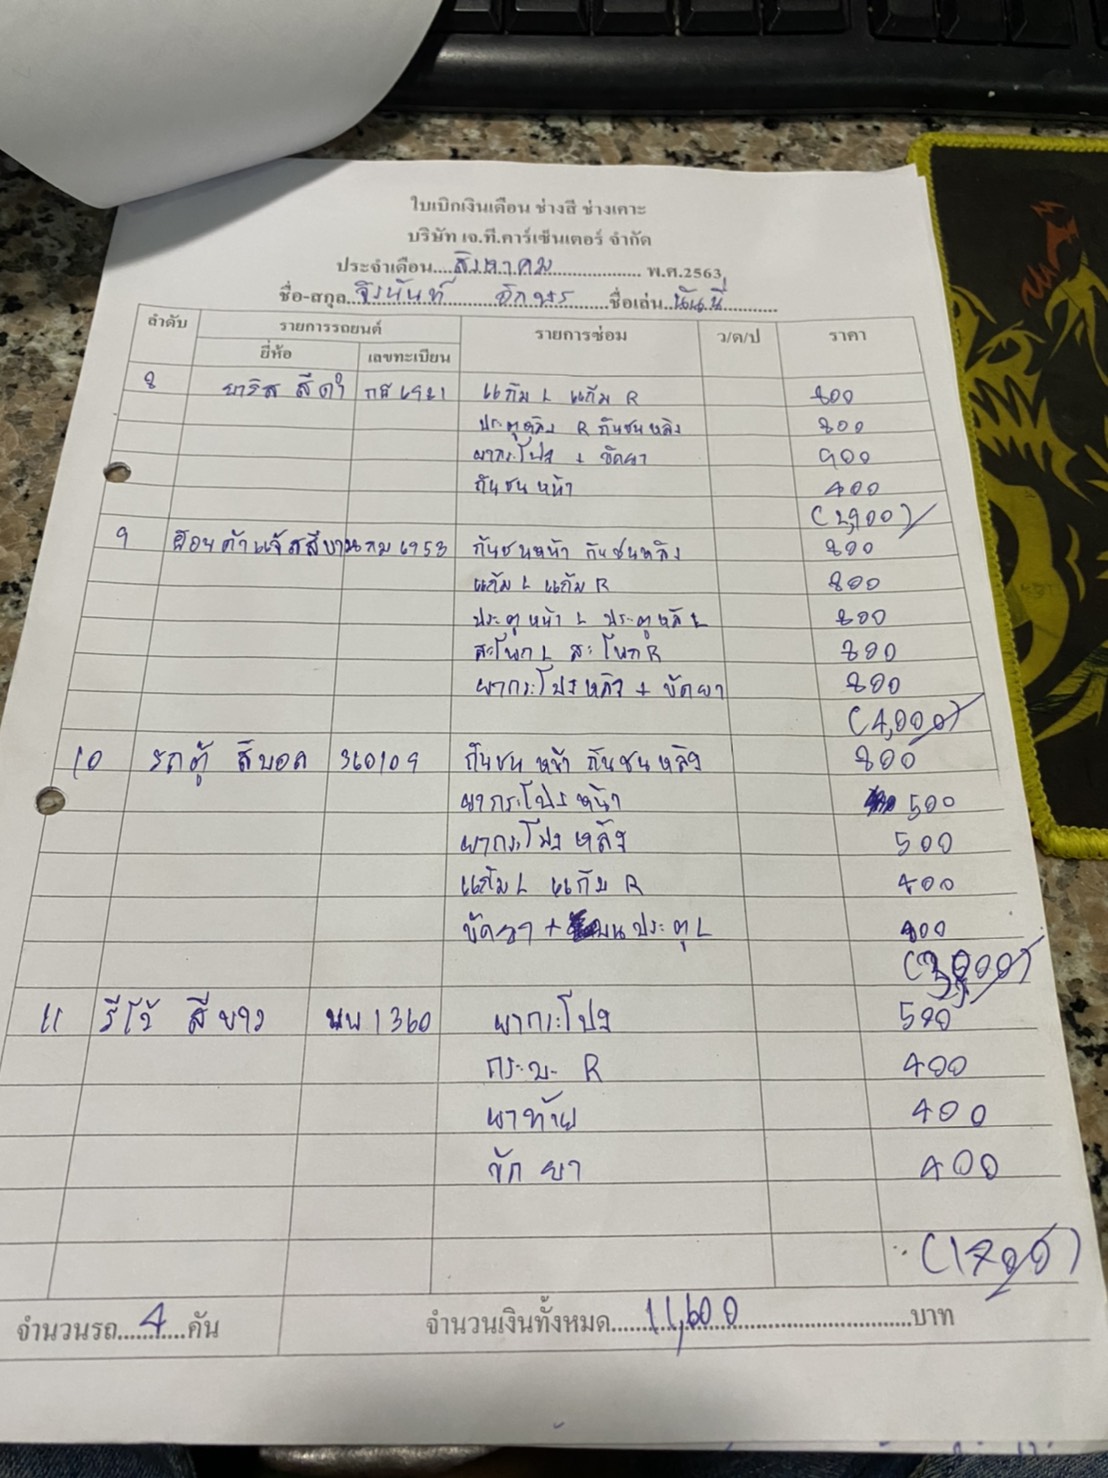 ใบเบิกเงินเดือน ช่างสี ช่างเคาะ
บริษัท เจ.ที.คาร์เซ็นเตอร์ จำกัด
ประจำเดือน....สิงหาคม.................... พ.ศ.2563
ชื่อ-สกุล...จิรนันท์ อักษร......ชื่อเล่น..นันนี่............
ลำดับ รายการรถยนต์ รายการซ่อม ว/ด/ป ราคา
ยี่ห้อ เลขทะเบียน
8 ยาริส สีดำ แก้ม L แก้ม R 800
ประตูหลัง R กันชนหลัง 800
ฝากระโปรง + ขัดยา 900
กันชนหน้า 400
(2,900)
9 กม 6953 กันชนหน้า กันชนหลัง 800
แก้ม L แก้ม R 800
ประตูหน้า L ประตูหลัง L 800
สะโพก L สะโพก R 800
ฝากระโปรงหลัง + ขัดยา 800
(4,000)
10 รถตู้ สีบอด 360109 กันชนหน้า กันชนหลัง 800
ฝากระโปรงหน้า 500
ฝากระโปรงหลัง 500
แก้ม L แก้ม R 400
ขัดยา + ประตู L 800
11 รีโว้ สีขาว นพ 1360 ฝากระโปรง 500
กระบะ R 400
ฝาท้าย 400
ขัดยา 400
(1700)
จำนวนรถ.....4.....คัน จำนวนเงินทั้งหมด.....11,600.....บาท